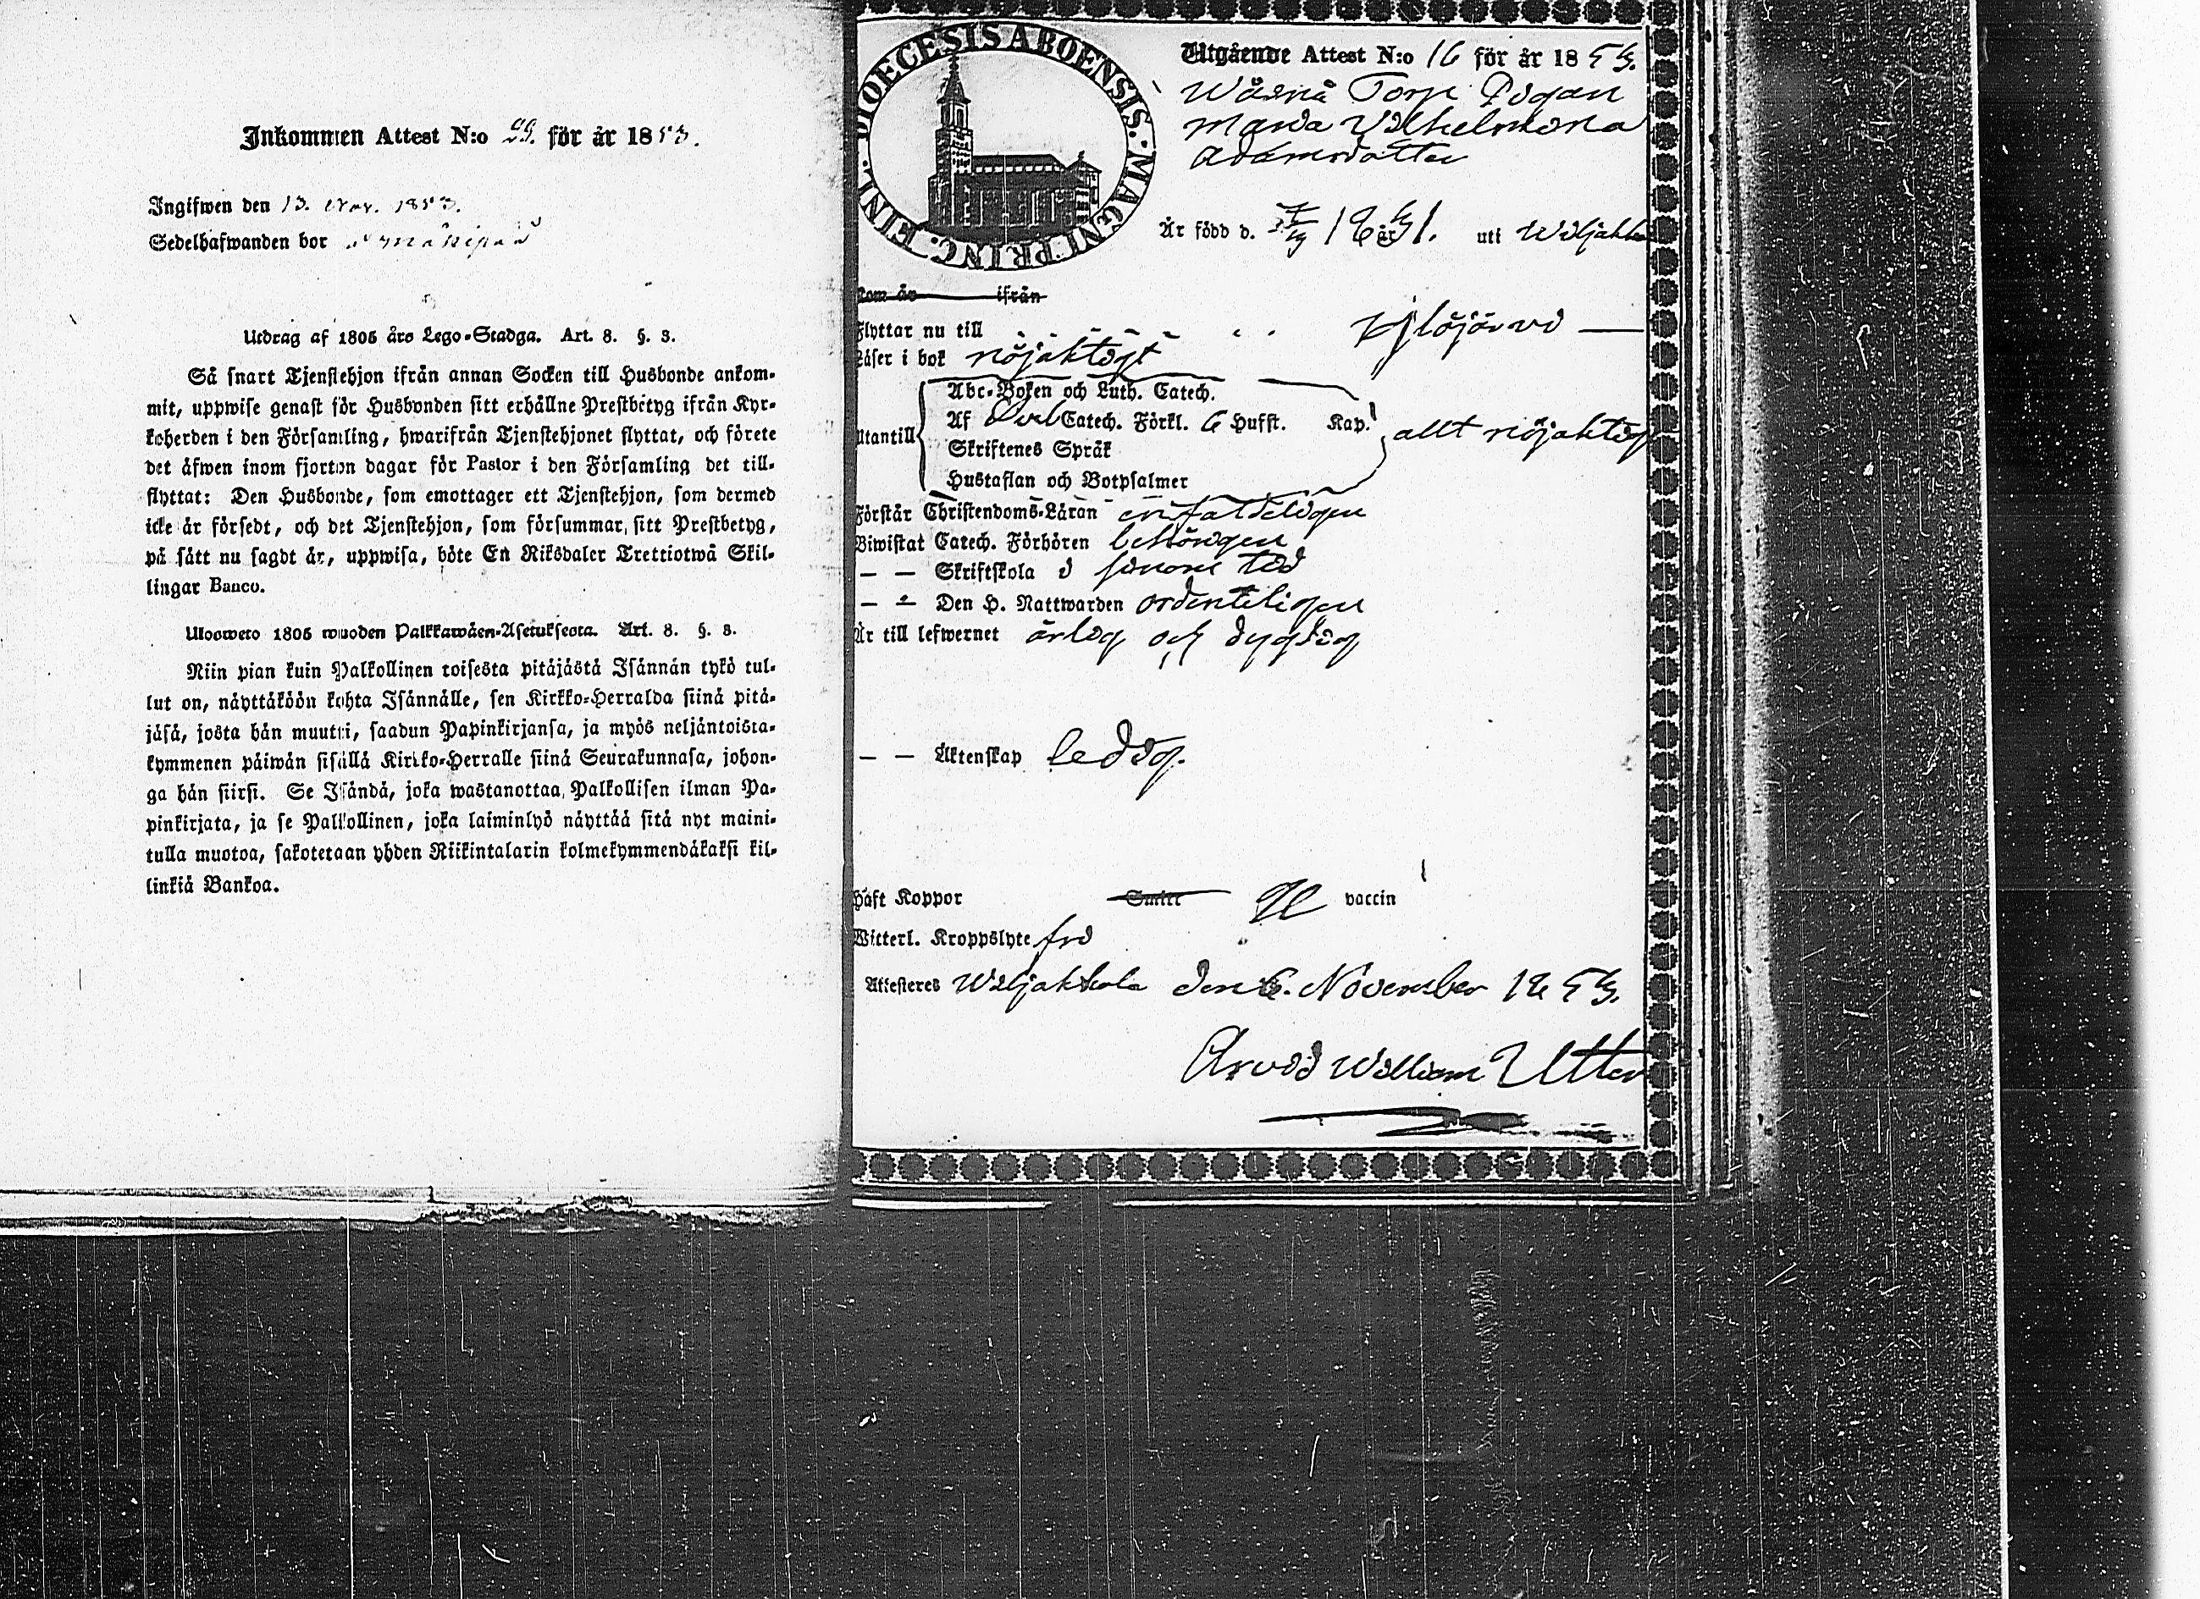 Inkommen Attest N:o 29. för år 1853.
Ingifwen den 13. Nov. 1853.
Sedelhafwanden bor
Utdrag af 1805 års Lego-Stadga. Art. 8. §. 3.
Så snart Tjenstehjon ifrån annan Socken till Husbonde ankom-
mit, uppwise genast för Husbonden sitt erhållne Prestbetyg ifrån Kyr-
koherden i den Församling, hwarifrån Tjenstehjonet flyttat, och förete
det äfwen inom fjorton dagar för Pastor i den Församling det till-
flyttat: Den Husbonde, som emottager ett Tjenstehjon, som dermed
icke är försedt, och det Tjenstehjon, som försummar, sitt Prestbetyg,
på sätt nu sagdt är, uppwisa, böte En Riksdaler Trettiotwå Skil-
lingar Banco.
Ulosweto 1805 wuoden Palkkawäen-Asetuksesta. Art. 8. §. 3.
Niin pian kuin Palkollinen toisesta pitäjästä Isännän tykö tul-
lut on, näyttäköön kohta Isännälle, sen Kirkko-Herralda siinä pitä-
jäsä, josta hän muutti, saadun Papinkirjansa, ja myös neljäntoista-
kymmenen päiwän sisällä Kirkko-Herralle siinä Seurakunnasa, johon-
ga hän siirsi. Se Isändä, joka wastanottaa, Palkollisen ilman Pa-
pinkirjata, ja se Palkollinen, joka laiminlyö näyttää sitä nyt maini-
tulla muotoa, sakotetaan yhden Riikintalarin kolmekymmendäkaksi kil-
linkiä Bankoa.
DIOECESIS ABOENSIS. MAGNI PRINC. FINL.
Utgående Attest N:o 16 för år 1853.
Wäsnä Torp Pigan
Maria Vilhelmina
Adamsdotter
Är född d. 1831. uti Wiljakka
Kom år ifrån
Flyttar nu till Ylöjärvi
Läser i bok nöjaktigt
Abc-Boken och Luth. Catech.
Af Catech. Förkl. 6 Hufst. Kap.
Utantill allt nöjaktig
Skriftenes Språk
Hustaflan och Botpsalmer
Förstår Christendoms-Läran enfaldeligen
Biwistat Catech. Förhören behörigen
— — Skriftskola i sinom tid
— — Den H. Nattwarden ordenteligen
Är till lefwernet ärlig och dygdig
— — Äktenskap ledig.
Haft Koppor Smitt vaccin
Witterl. Kroppslyte fri
Attesteres Wiljakkala den 6. November 1853.
Arvid William Utter